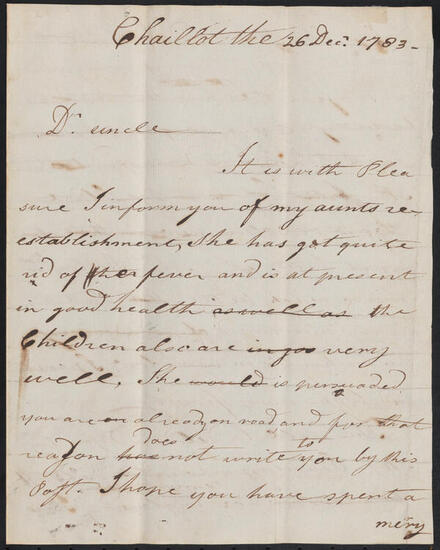 Chaillot the 26 Dec.r 1783-
Dr. uncle
It is with Plea
sure I inform you of my aunts re-
establishment, She has got quite
rid of her fever and is at present
in good health as well as the
Children also are in goo very
well, She would is persuaded
you are already on road, and for that
reason has does not write to you by this
Post. I hope you have spent a
mery